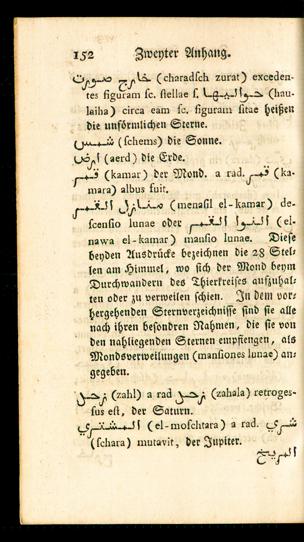 152 Zweyter Anhang.
خارج صورت (charadsch zurat) exceden-
tes figuram sc. stellae s. حواليها (hau-
laiha) circa eam sc. figuram sitae heißen
die unförmlichen Sterne.
شمس (schems) die Sonne.
ارض (aerd) die Erde.
قمر (kamar) der Mond. a rad. قمر (ka-
mara) albus fuit.
منازل القمر (menasil el-kamar) de-
scensio lunae oder النوا القمر (el-
nawa el-kamar) mansio lunae. Diese
beyden Ausdrücke bezeichnen die 28 Stel-
len am Himmel, wo sich der Mond beym
Durchwandern des Thierkreises aufzuhal-
ten oder zu verweilen schien. In dem vor-
hergehenden Sternverzeichnisse sind sie alle
nach ihren besondren Nahmen, die sie von
den nahliegenden Sternen empfiengen, als
Mondsverweilungen (mansiones lunae) an-
gegeben.
زحل (zahl) a rad زحل (zahala) retroges-
sus est, der Saturn.
المشتري (el-moschtara) a rad. شري
(schara) mutavit, der Jupiter.
المريخ